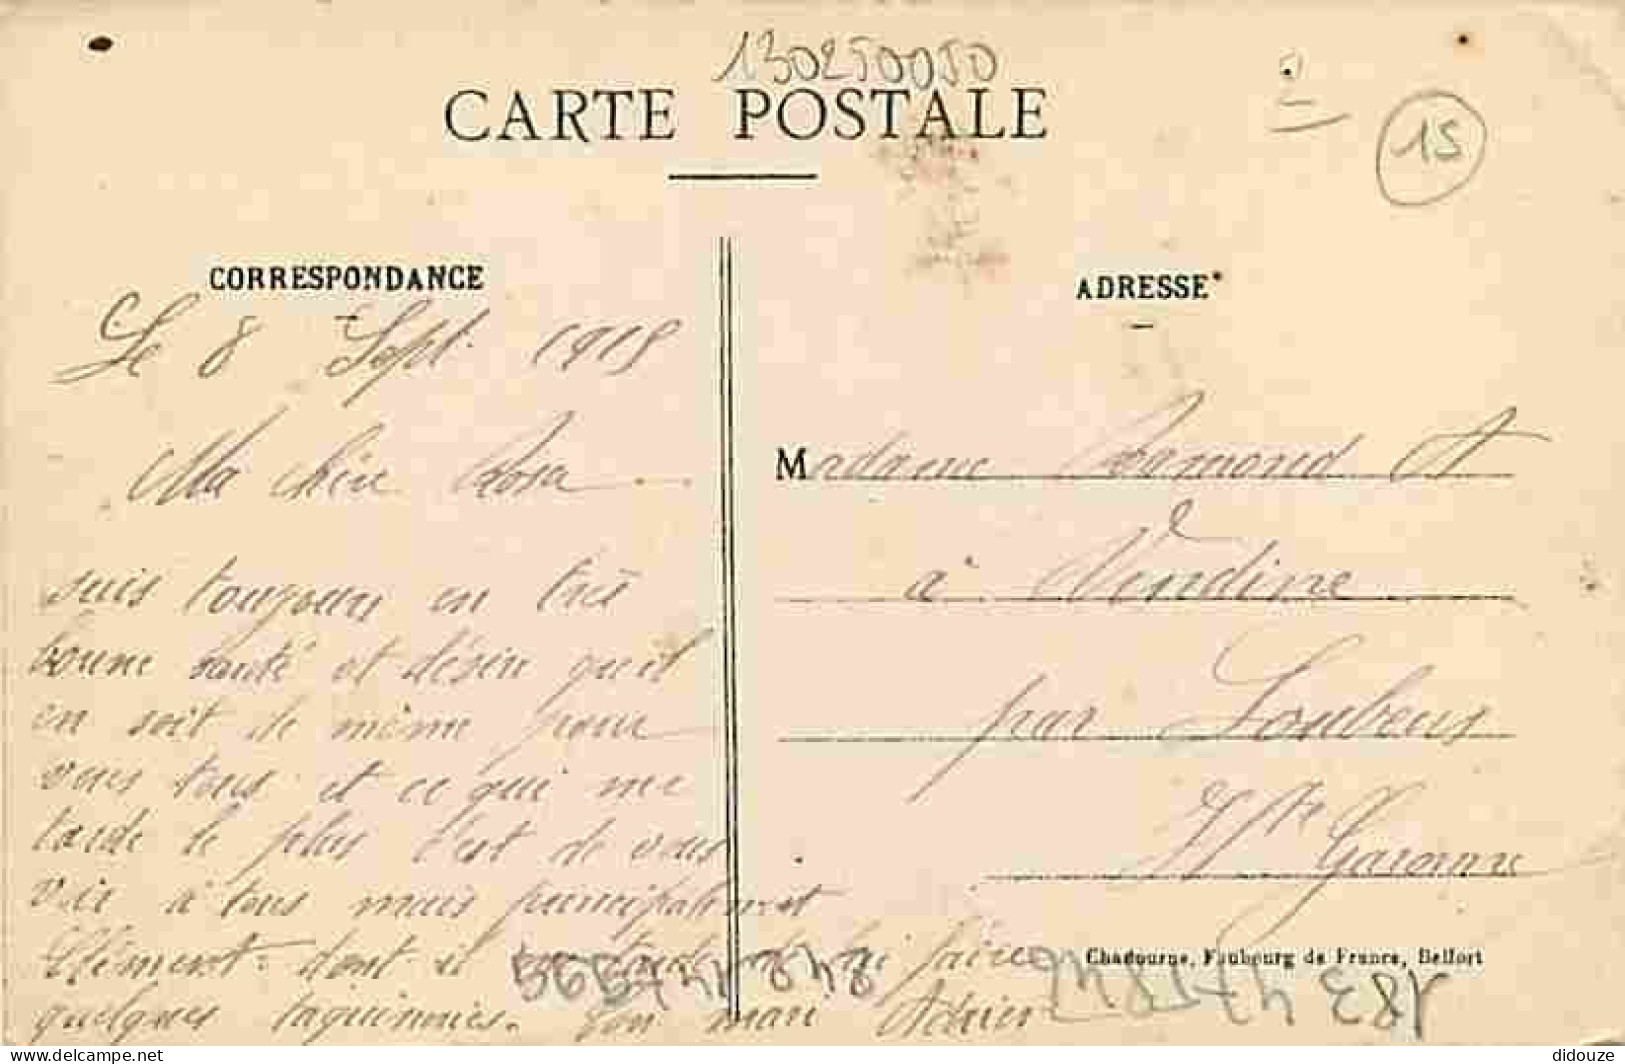 130250050
CARTE POSTALE
15
CORRESPONDANCE
Le 8 Sept. 1915
Ma chère Rosa
suis toujours en très
bonne santé et désire qu'il
en soit de même pour
vous tous et ce qui me
tarde le plus c'est de vous
voir à tous mais principalement
Clément dont il me tarde de lui faire
quelques taquineries. Ton mari Adrien
ADRESSE
Madame Ramond A
à Vendine
par Loubens
Hte Garonne
Chadourne, Faubourg de France, Belfort
didouze